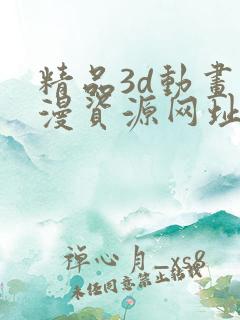 精品3d動畫
漫資源网址
禅心月_xs8
未任同意禁止转载